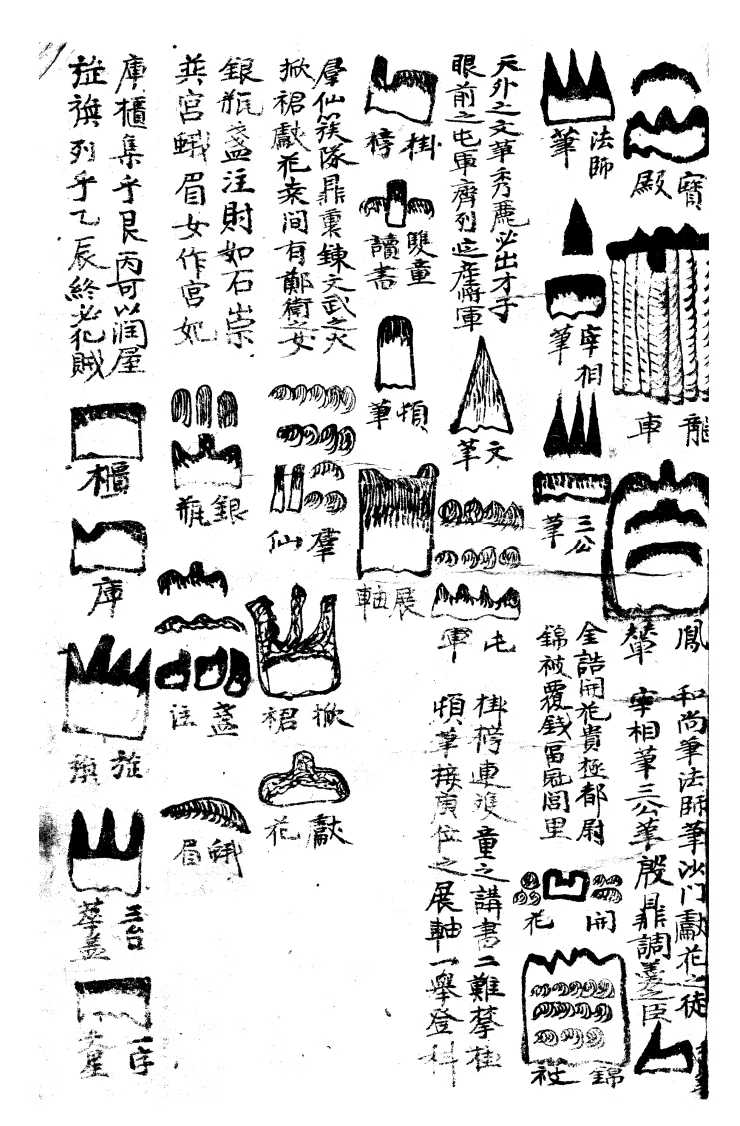 寶殿
龍車
鳳輦
和尚筆法師筆沙门獻花之徒
宰相筆三公筆殷鼎調羹之臣
法師筆
宰相筆
三公筆
金誥開花貴極都尉
錦被覆錢富冠閭里
開花
錦被
天外之文筆秀麗必出才子
眼前之屯軍齊列定產將軍
文筆
屯軍
掛榜連雙童之講書二難攀桂
頓筆接寅位之展軸一舉登科
掛榜
雙童讀書
頓筆
展軸
羣仙簇隊鼎裏鍊文武之火
掀裙獻花桒间有鄭衛之女
羣仙
掀裙
獻花
銀瓶盞注財如石崇
英宮蛾眉女作宮妃
銀瓶
盞注
蛾眉
庫櫃集乎艮丙可以潤屋
旌旗列乎乙辰終必犯賊
櫃
庫
旌旗
三台華盖
一字